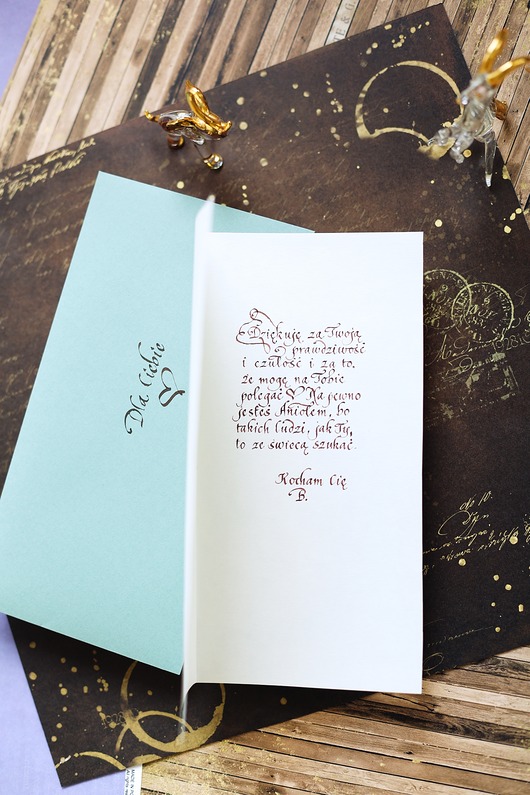 Dla Ciebie
Dziękuję za Twoją
prawdziwość
i czułość i za to,
że mogę na Tobie
polegać Na pewno
jesteś Aniołem, bo
takich ludzi, jak Ty,
to ze świecą szukać.
Kocham Cię
B.